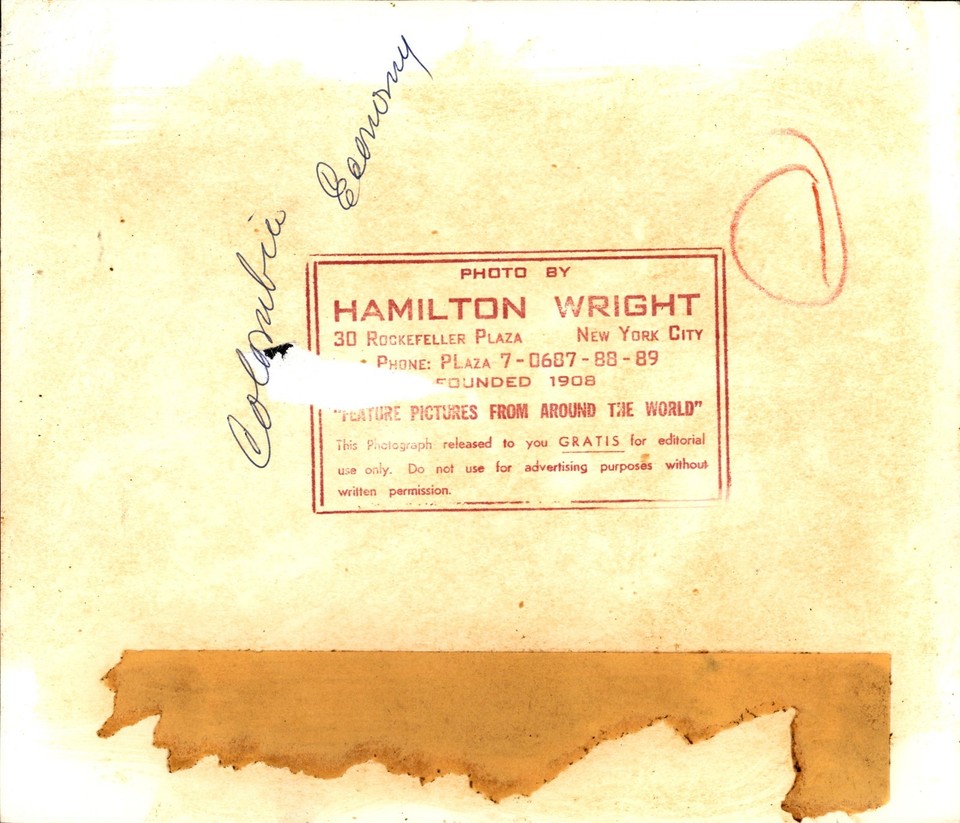 Columbia Economy
PHOTO BY
HAMILTON WRIGHT
30 ROCKEFELLER PLAZA NEW YORK CITY
PHONE: PLAZA 7-0687-88-89
FOUNDED 1908
"FEATURE PICTURES FROM AROUND THE WORLD"
This Photograph released to you GRATIS for editorial
use only. Do not use for advertising purposes without
written permission.